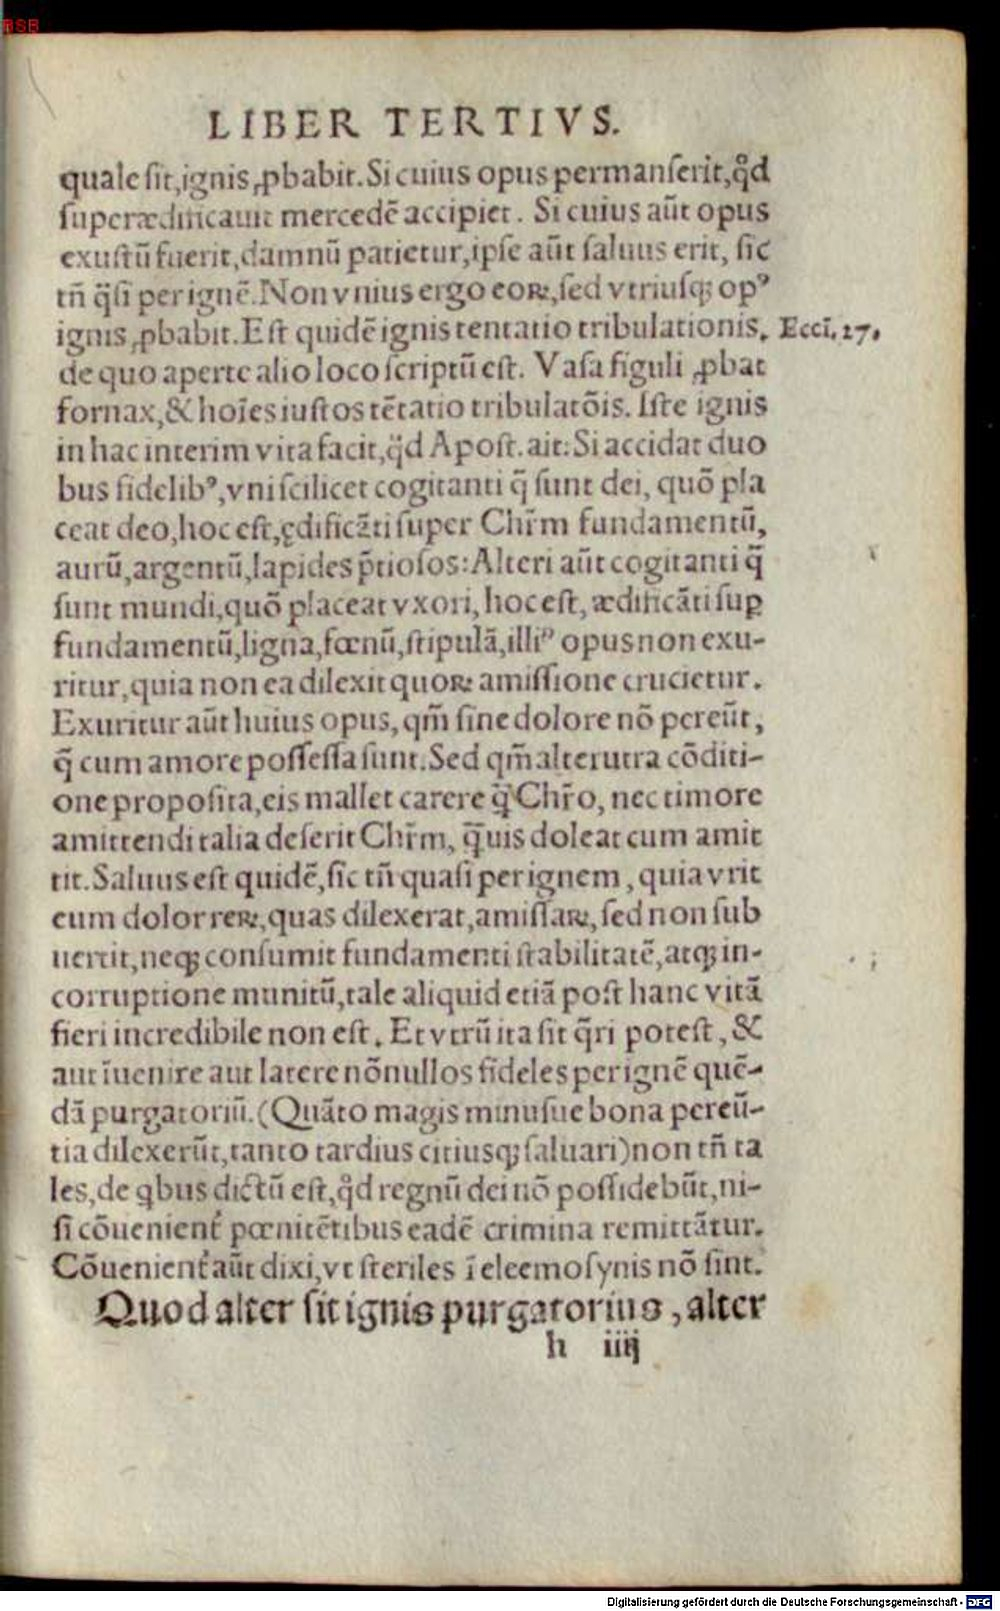 BSB
LIBER TERTIVS.
quale sit, ignis ꝓbabit. Si cuius opus permanserit, qd̕
superædificauit mercedē accipiet. Si cuius aūt opus
exustū fuerit, damnū patietur, ipse aūt saluus erit, sic
tñ q̄si per ignē. Non vnius ergo eoꝝ, sed vtriusqꝫ opꝰ
ignis ꝓbabit. Est quidē ignis tentatio tribulationis, Eccī. 27.
de quo aperte alio loco scriptū est. Vasa figuli ꝓbat
fornax, & hoīes iustos tētatio tribulatōis. Iste ignis
in hac interim vita facit, qd̕ Apost. ait: Si accidat duo
bus fidelibꝰ, vni scilicet cogitanti q̄ sunt dei, quō pla
ceat deo, hoc est, ędificāti super Chr̄m fundamentū,
aurū, argentū, lapides p̄tiosos: Alteri aūt cogitanti q̄
sunt mundi, quō placeat vxori, hoc est, ædificāti suꝑ
fundamentū, ligna, fœnū, stipulā, illiꝰ opus non exu-
ritur, quia non ea dilexit quoꝝ amissione crucietur.
Exuritur aūt huius opus, qm̄ sine dolore nō pereūt,
q̄ cum amore possessa sunt. Sed qm̄ alterutra cōditi-
one proposita, eis mallet carere q̄ Chr̄o, nec timore
amittendi talia deserit Chr̄m, q̄uis doleat cum amit
tit. Saluus est quidē, sic tñ quasi per ignem, quia vrit
eum dolor reꝝ, quas dilexerat, amissaꝝ, sed non sub
uertit, neqꝫ consumit fundamenti stabilitatē, atqꝫ in-
corruptione munitū, tale aliquid etiā post hanc vitā
fieri incredibile non est. Et vtrū ita sit q̄ri potest, &
aut īuenire aut latere nōnullos fideles per ignē quē-
dā purgatoriū. (Quāto magis minusue bona pereū-
tia dilexerūt, tanto tardius citiusqꝫ saluari) non tñ ta
les, de qbus dictū est, qd̕ regnū dei nō possidebūt, ni-
si cōuenient̕ pœnitētibus eadē crimina remittātur.
Cōuenient̕ aūt dixi, vt steriles ī eleemosynis nō sint.
Quod alter sit ignis purgatorius, alter
h iiij
Digitalisierung gefördert durch die Deutsche Forschungsgemeinschaft - DFG